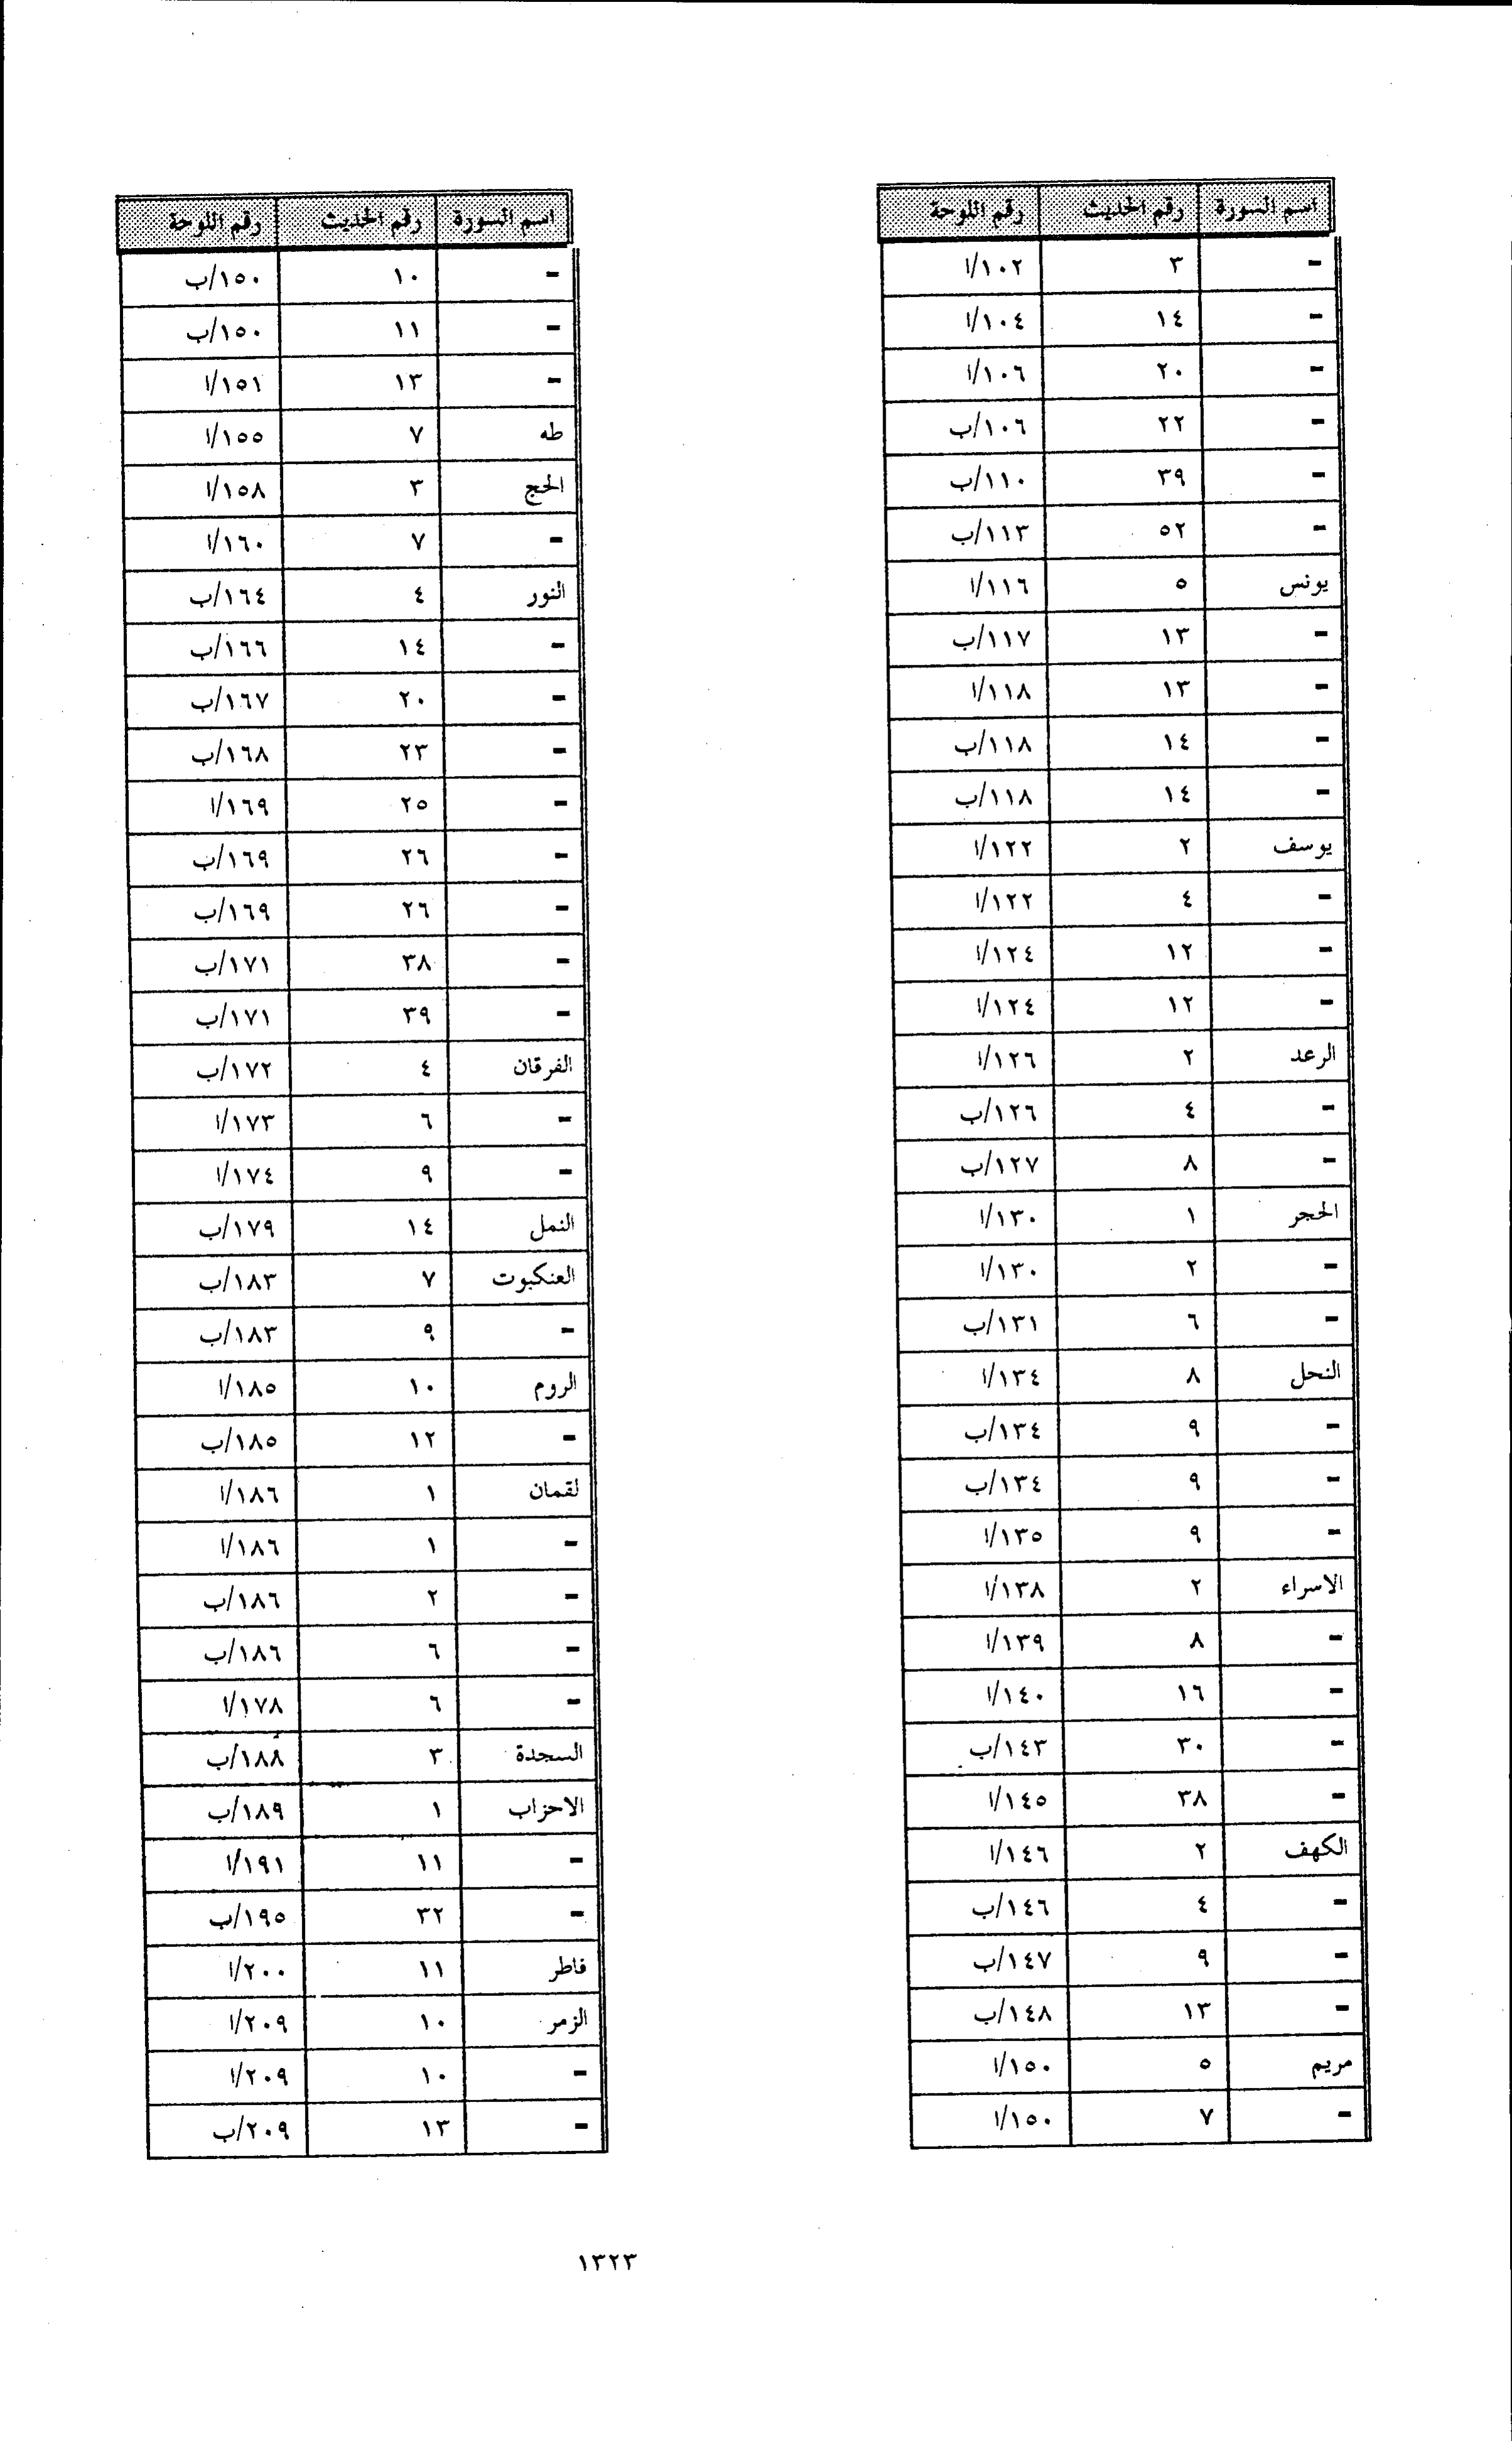 اسم السورة رقم الحديث رقم اللوحة
- ٣ ١٠٢/ا
- ١٤ ١٠٤/ا
- ٢٠ ١٠٦/ا
- ٢٢ ١٠٦/ب
- ٣٩ ١١٠/ب
- ٥٢ ١١٣/ب
يونس ٥ ١١٦/ا
- ١٣ ١١٧/ب
- ١٣ ١١٨/ا
- ١٤ ١١٨/ب
- ١٤ ١١٨/ب
يوسف ٢ ١٢٢/ا
- ٤ ١٢٢/ا
- ١٢ ١٢٤/ا
- ١٢ ١٢٤/ا
الرعد ٢ ١٢٦/ا
- ٤ ١٢٦/ب
- ٨ ١٢٧/ب
الحجر ١ ١٣٠/ا
- ٢ ١٣٠/ا
- ٦ ١٣١/ب
النحل ٨ ١٣٤/ا
- ٩ ١٣٤/ب
- ٩ ١٣٤/ب
- ٩ ١٣٥/ا
الاسراء ٢ ١٣٨/ا
- ٨ ١٣٩/ا
- ١٦ ١٤٠/ا
- ٣٠ ١٤٣/ب
- ٣٨ ١٤٥/ا
الكهف ٢ ١٤٦/ا
- ٤ ١٤٦/ب
- ٩ ١٤٧/ب
- ١٣ ١٤٨/ب
مريم ٥ ١٥٠/ا
- ٧ ١٥٠/ا
اسم السورة رقم الحديث رقم اللوحة
- ١٠ ١٥٠/ب
- ١١ ١٥٠/ب
- ١٣ ١٥١/ا
طه ٧ ١٥٥/ا
الحج ٣ ١٥٨/ا
- ٧ ١٦٠/ا
النور ٤ ١٦٤/ب
- ١٤ ١٦٦/ب
- ٢٠ ١٦٧/ب
- ٢٣ ١٦٨/ب
- ٢٥ ١٦٩/ا
- ٢٦ ١٦٩/ب
- ٢٦ ١٦٩/ب
- ٣٨ ١٧١/ب
- ٣٩ ١٧١/ب
الفرقان ٤ ١٧٢/ب
- ٦ ١٧٣/ا
- ٩ ١٧٤/ا
النمل ١٤ ١٧٩/ب
العنكبوت ٧ ١٨٣/ب
- ٩ ١٨٣/ب
الروم ١٠ ١٨٥/ا
- ١٢ ١٨٥/ب
لقمان ١ ١٨٦/ا
- ١ ١٨٦/ا
- ٢ ١٨٦/ب
- ٦ ١٨٦/ب
- ٦ ١٧٨/ا
السجدة ٣ ١٨٨/ب
الاحزاب ١ ١٨٩/ب
- ١١ ١٩١/ا
- ٣٢ ١٩٥/ب
فاطر ١١ ٢٠٠/ا
الزمر ١٠ ٢٠٩/ا
- ١٠ ٢٠٩/ا
- ١٣ ٢٠٩/ب
١٣٢٣